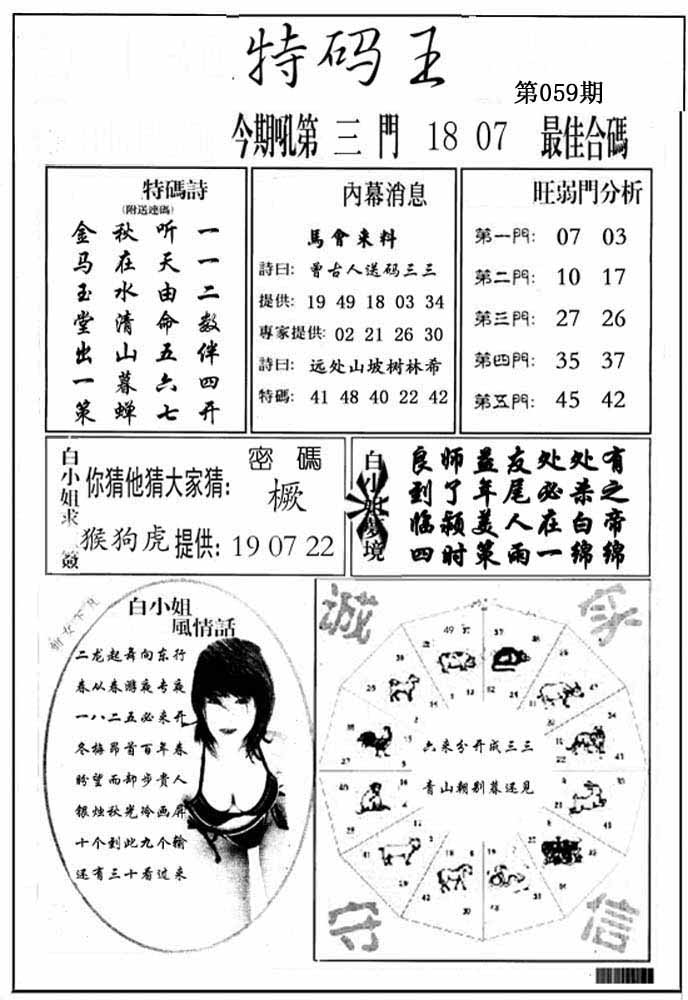 特码王
第059期
今期吼第 三 門 18 07 最佳合碼
特碼詩
(附送連碼)
金马玉堂出一策
秋在水清山暮蝉
听天由命五六七
一一二数伴四开
內幕消息
馬會来料
詩曰: 曾古人送码三三
提供: 19 49 18 03 34
專家提供: 02 21 26 30
詩曰: 远处山坡树林希
特碼: 41 48 40 22 42
旺弱門分析
第一門: 07 03
第二門: 10 17
第三門: 27 26
第四門: 35 37
第五門: 45 42
白小姐求 簽
你猜他猜大家猜:
密碼
橛
猴狗虎 提供: 19 07 22
白小姐夢境
良师益友处处有
到了年尾必杀之
临颍美人在白帝
四时策雨一绵绵
白小姐
風情話
二龙起舞向东行
春从春游夜专夜
一八二五必来开
冬梅昂首百年春
盼望而却步贵人
银烛秋光冷画屏
十个到此九个输
还有三十看过来
誠
家
守
信
六来分开成三三
青山朝别暮还见
49 37